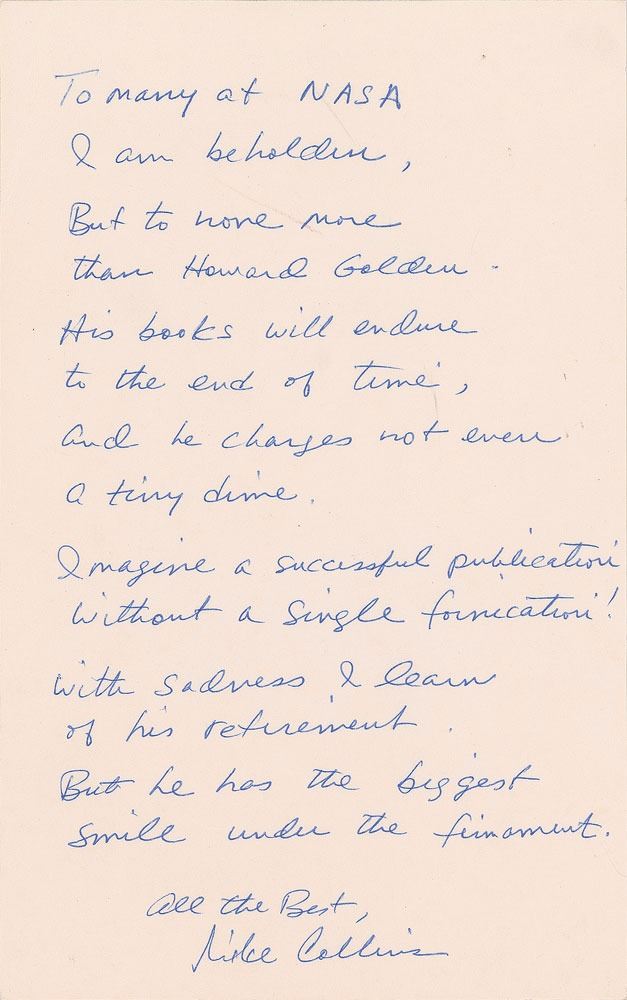 To many at NASA
I am beholden,
But to none more
than Howard Golden.
His books will endure
to the end of time,
And he charges not even
a tiny dime.
Imagine a successful publication
Without a single fornication!
With sadness I learn
of his retirement.
But he has the biggest
smile under the firmament.
All the Best,
Mike Collins